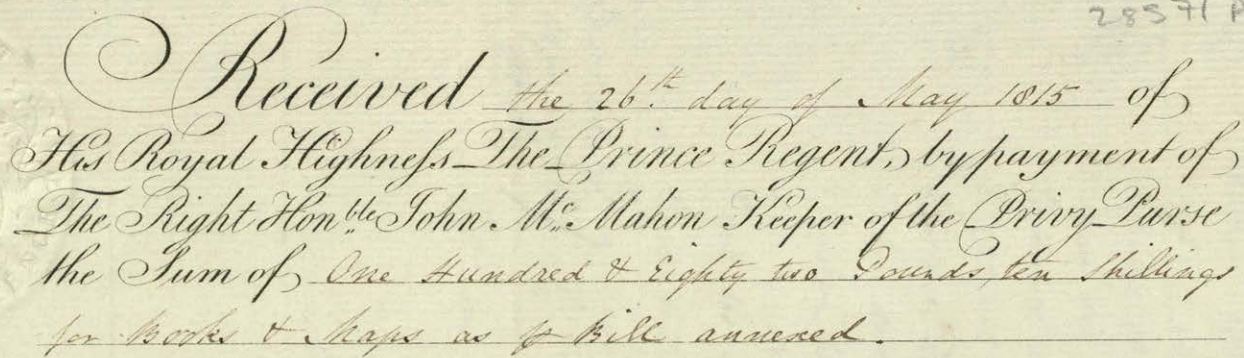 28571
Received the 26th. day of May 1815 of
His Royal Highneſs The Prince Regent, by payment of
The Right Honble. John Mc. Mahon Keeper of the Privy Purse
the Sum of One Hundred & Eighty two Pounds, ten Shillings
for Books & Maps as ⅌ Bill annexed.